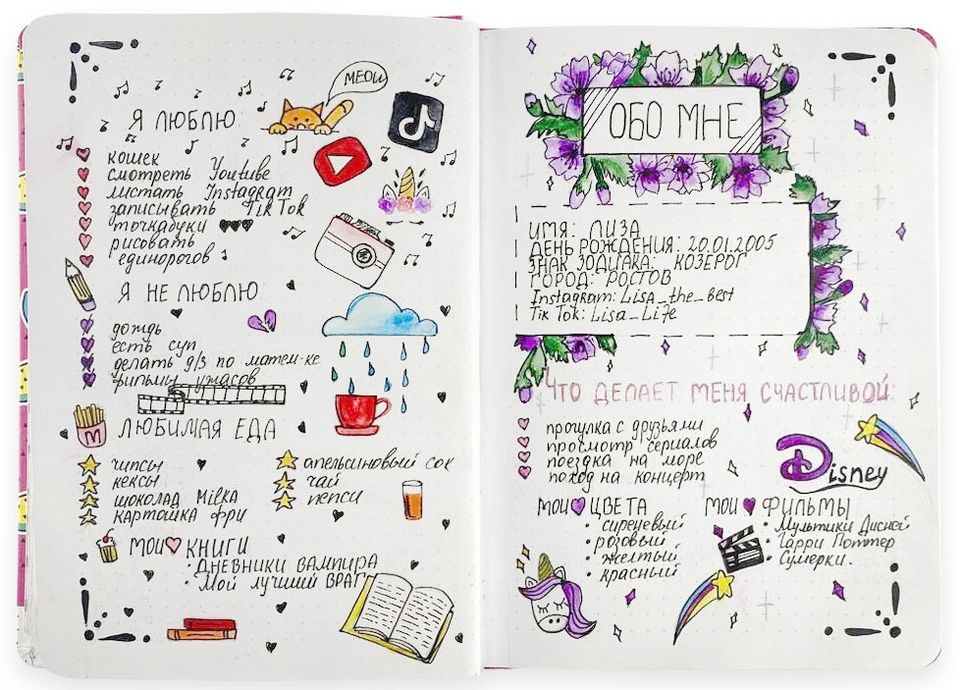 MEOW
Я ЛЮБЛЮ
кошек
смотреть Youtube
листать Instagram
записывать Tik Tok
точкабуки
рисовать
единорогов
Я НЕ ЛЮБЛЮ
дождь
есть суп
делать д/з по матем-ке
фильмы ужасов
M
ЛЮБИМАЯ ЕДА
чипсы
кексы
шоколад Milka
картошка фри
апельсиновый сок
чай
пепси
МОИ КНИГИ
· ДНЕВНИКИ ВАМПИРА
· МОЙ ЛУЧШИЙ ВРАГ
ОБО МНЕ
ИМЯ: ЛИЗА
ДЕНЬ РОЖДЕНИЯ: 20.01.2005
ЗНАК ЗОДИАКА: КОЗЕРОГ
ГОРОД: РОСТОВ
Instagram: Lisa_the_best
Tik Tok: Lisa_Life
ЧТО ДЕЛАЕТ МЕНЯ СЧАСТЛИВОЙ:
прогулка с друзьями
просмотр сериалов
поездка на море
поход на концерт
Disney
МОИ ЦВЕТА
· сиреневый
· розовый
· желтый
· красный
МОИ ФИЛЬМЫ
· Мультики Дисней
· Гарри Поттер
· Сумерки.